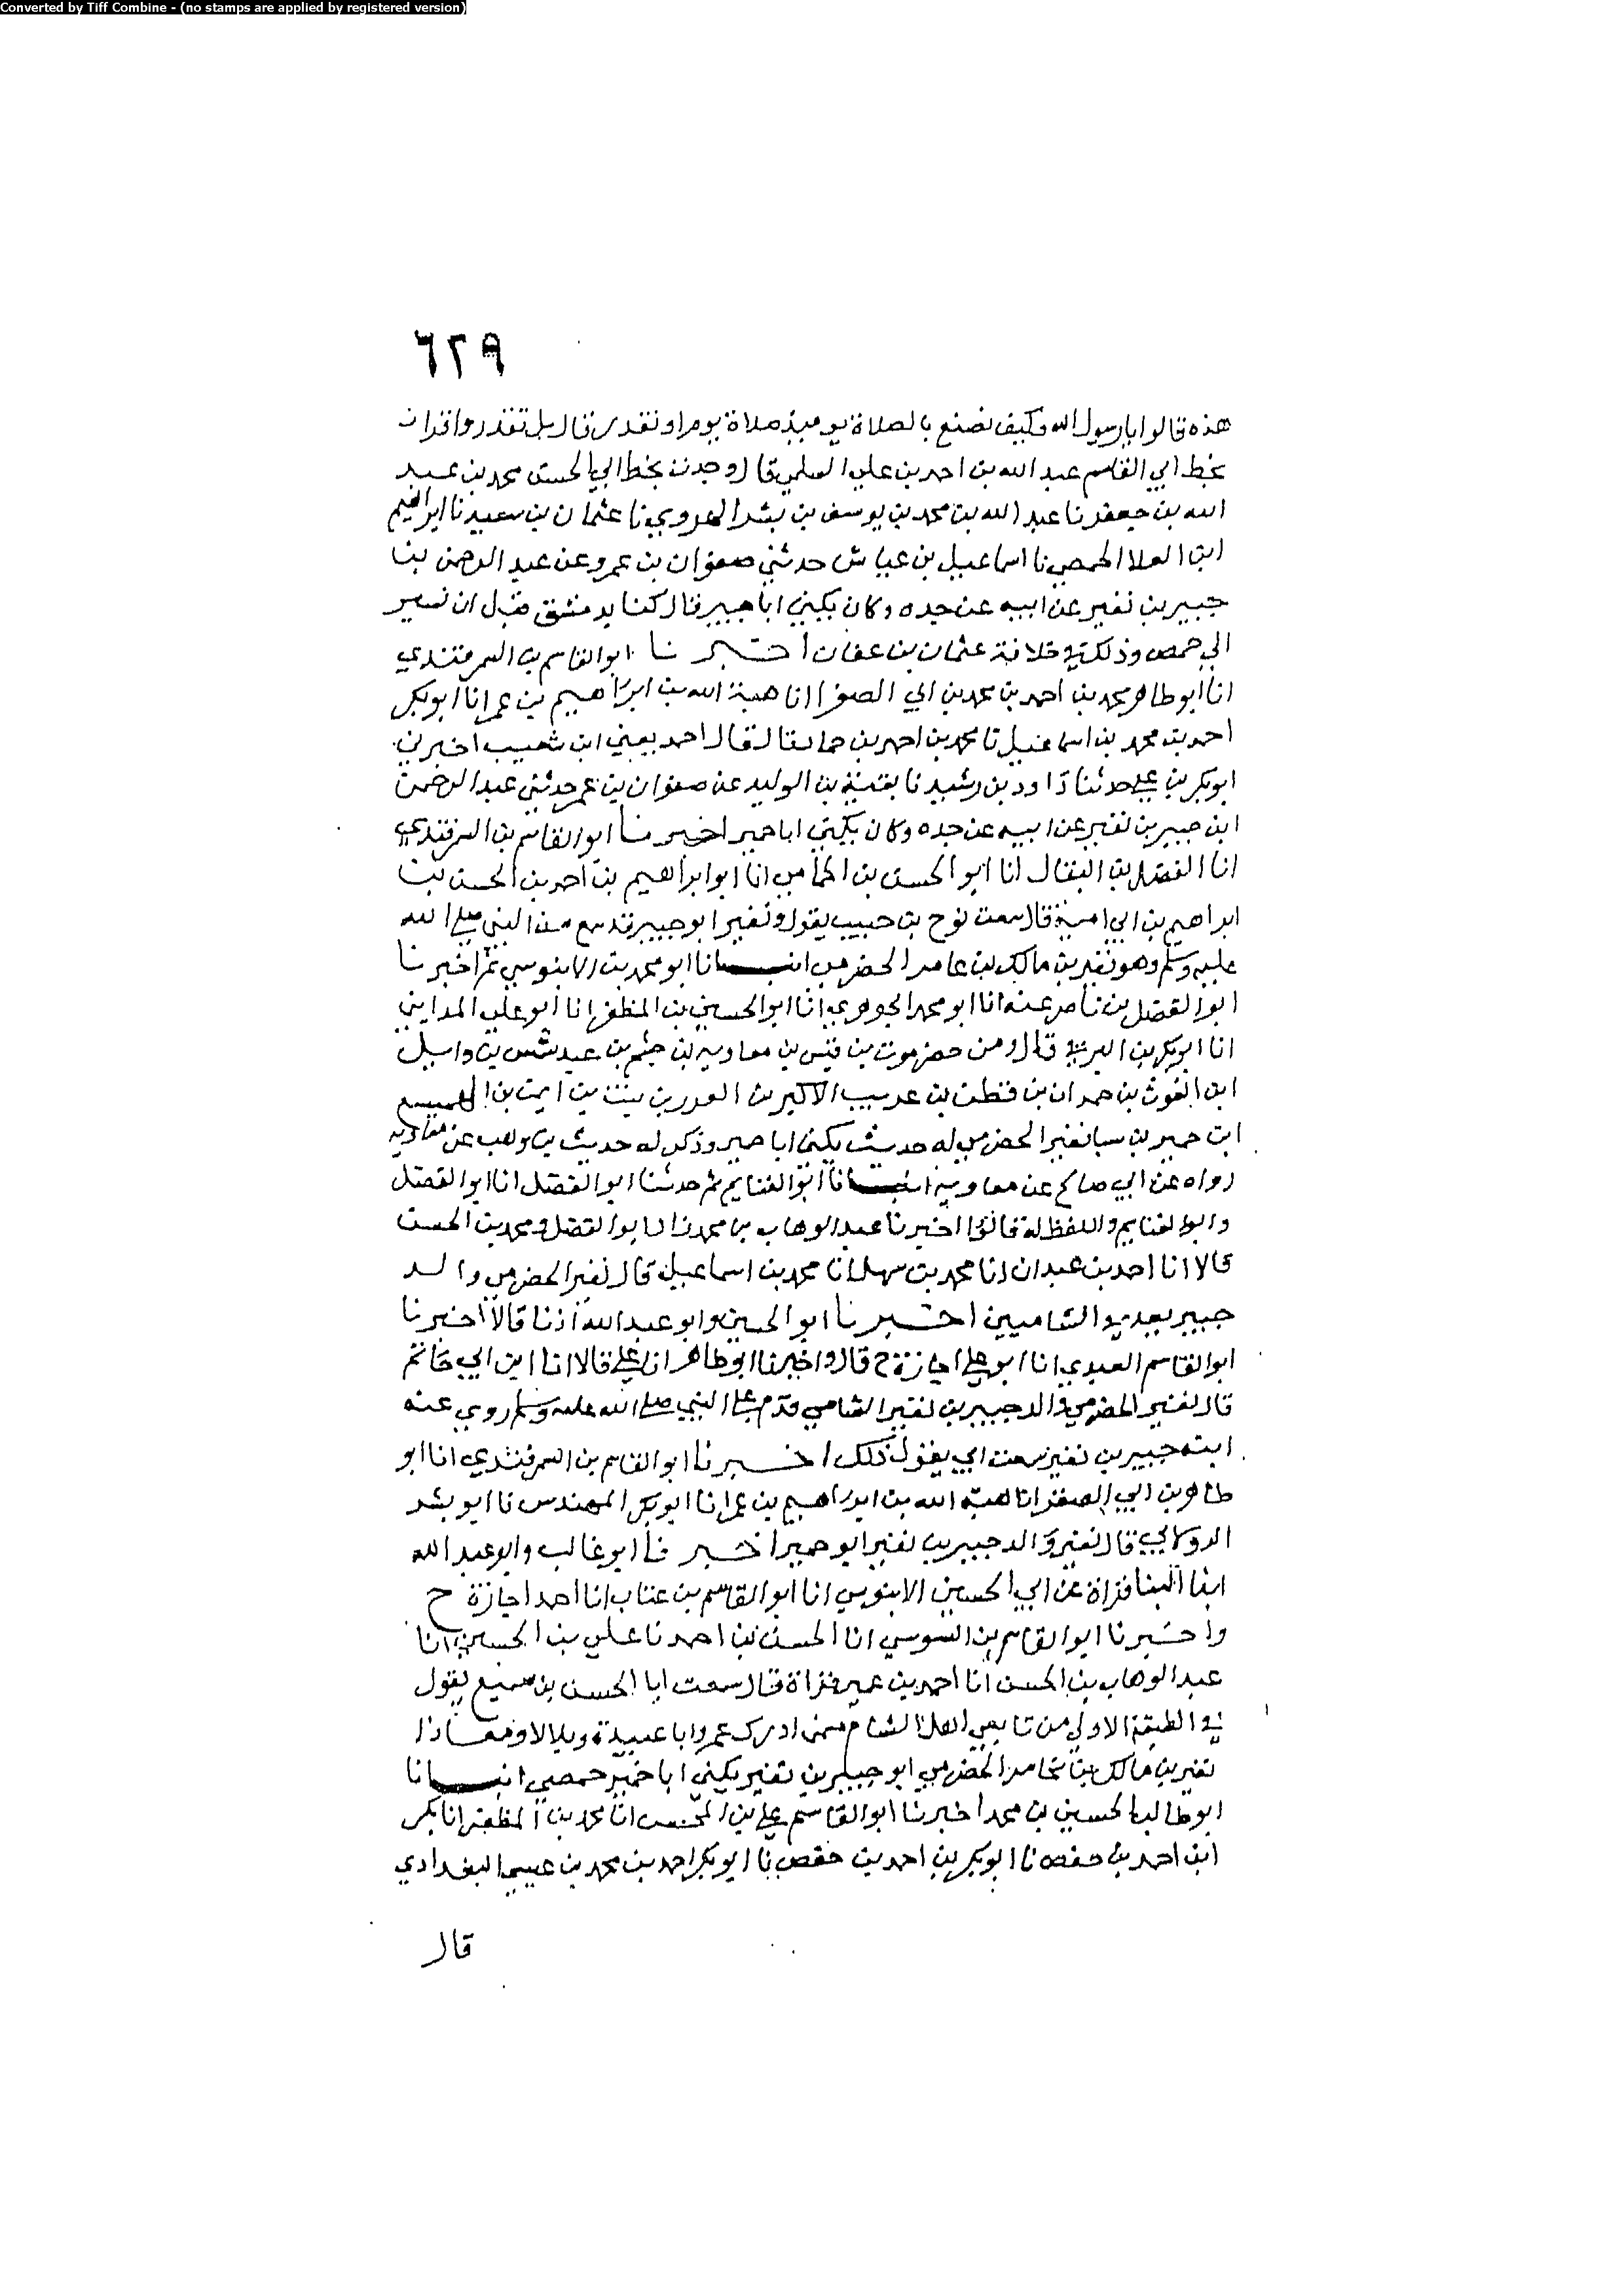 Converted by Tiff Combine - (no stamps are applied by registered version)
٦٢٩
هذه قالوا يا رسول الله وكيف نصنع بالصلاة يوميذ صلاة يوم او نقدر قال بل تقدروا قرات
بخط ابي القاسم عبد الله بن احمد بن علي السلمي قال وجدت بخط ابي الحسن محمد بن عبد
الله بن جعفر نا عبد الله بن محمد بن يوسف بن بشر الهروي نا عثمان بن سعيد نا ابراهيم
ابن العلا الحمصي نا اسماعيل بن عياش حدثني صفوان بن عمرو عن عبد الرحمن بن
جبير بن نفير عن ابيه عن جده وكان يكني ابا جبير قال كنا بدمشق قبل ان نسير
الي حمص وذلك في خلافة عثمان بن عفان اخبرنا ابو القاسم بن السمرقندي
انا ابو طاهر محمد بن احمد بن محمد بن ابي الصقر انا هبة الله بن ابراهيم بن عمر انا ابو بكر
احمد بن محمد بن اسماعيل نا محمد بن احمد بن حماد قال قال احمد يعني ابن شعيب اخبرني
ابو بكر بن علي حدثنا داود بن رشيد نا بقية بن الوليد عن صفوان بن عمر حدثني عبد الرحمن
ابن جبير بن نفير عن ابيه عن جده وكان يكني ابا حمير اخبرنا ابو القاسم بن السمرقندي
انا الفضل بن البقال انا ابو الحسن بن الحمامي انا ابو ابراهيم بن احمد بن الحسن نا
ابراهيم بن ابي امية قال سمعت نوح بن حبيب يقول ونفير ابو جبير قد سمع من النبي صلي الله
عليه وسلم وهو نفير بن مالك بن عامر الحضرمي انبانا ابو محمد بن الابنوسي ثم اخبرنا
ابو الفضل بن ناصر عنه انا ابو محمد الجوهري انا ابو الحسين بن المظفر انا ابو علي المدايني
انا ابو بكر بن البرقي قال ومن حضرموت بن قيس بن معاوية بن جشم بن عبد شمس بن وايل
ابن الغوث بن حمدان بن قطن بن عريب الاكبر بن الغدر بن بنت بن ايمن بن الهميسع
ابن حمير بن سبا نفير الحضرمي له حديث يكنا ابا حمير وذكر له حديث بن وهب عن معاوية
رواه عن ابي صالح عن معاوية انبانا ابو الغنايم ثم حدثنا ابو الفضل انا ابو الفضل
وابو الغنايم واللفظ له قالوا اخبرنا عبد الوهاب بن محمد زاد ابو الفضل ومحمد بن الحسن
قالا انا احمد بن عبدان انا محمد بن سهل انا محمد بن اسماعيل قال نفير الحضرمي والد
جبير يعد في الشاميين اخبرنا ابو الحسين وابو عبد الله اذنا قالا اخبرنا
ابو القاسم العبدي انا ابو علي اجازة ح قال واخبرنا ابو طاهر انا علي قالا انا ابن ابي حاتم
قال نفير الحضرمي والد جبير بن نفير الشامي قدم علي النبي صلي الله عليه وسلم روي عنه
ابنه جبير بن نفير سمعت ابي يقول ذلك اخبرنا ابو القاسم بن السمرقندي انا ابو
طاهر بن ابي الصقر انا هبة الله بن ابراهيم بن عمر انا ابو بكر المهندس نا ابو بشر
الدولابي قال نفير والد جبير بن نفير ابو حمير اخبرنا ابو غالب وابو عبد الله
ابنا البنا قراة عن ابي الحسين الابنوسي انا ابو القاسم بن عتاب انا احمد اجازة ح
واخبرنا ابو القاسم بن السوسي انا الحسن بن احمد نا علي بن الحسين انا
عبد الوهاب بن الحسن انا احمد بن عمير قراة قال سمعت ابا الحسن بن سميع يقول
في الطبقة الاولي من تابعي اهل الشام ممن ادرك عمر وابا عبيدة وبلالا ومعاذا
نفير بن مالك بن عامر الحضرمي ابو جبير بن نفير يكني ابا خمير حمصي انبانا
ابو طالب الحسين بن محمد اخبرنا ابو القاسم علي بن المحسن انا محمد بن المظفر انا بكر
ابن احمد بن حفص نا ابو بكر بن احمد بن حفص نا ابو بكر احمد بن محمد بن عيسي البغدادي
قال